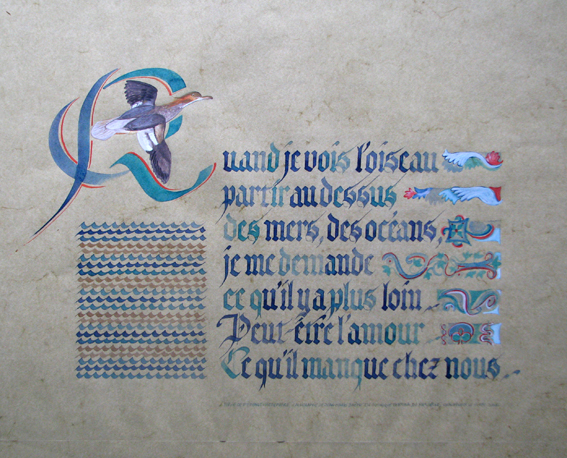 Quand je vois l'oiseau
partir au dessus
des mers, des océans,
je me demande
ce qu'il y a plus loin
Peut être l'amour
Ce qu'il manque chez nous